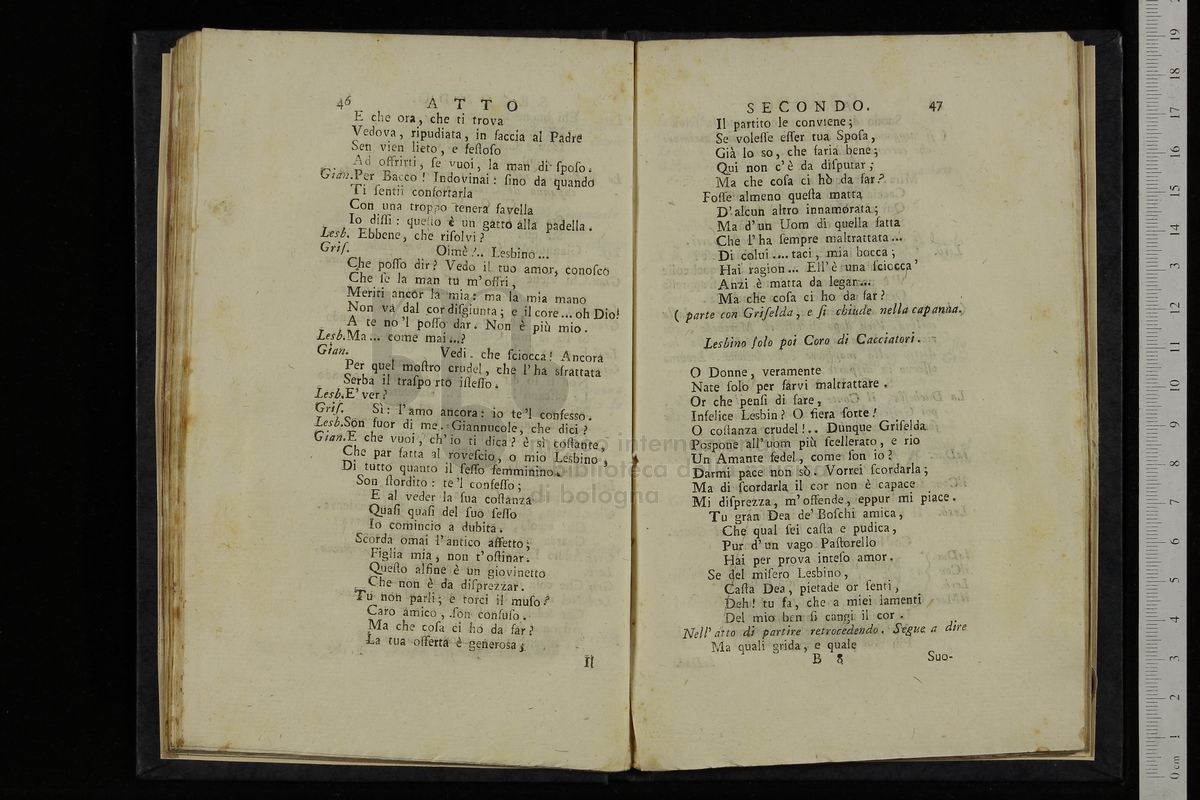 46 ATTO
E che ora, che ti trova
Vedova, ripudiata, in faccia al Padre
Sen vien lieto, e feſtoſo
Ad offrirti, ſe vuoi, la man di ſpoſo.
Gian.Per Bacco! Indovinai: ſino da quando
Ti ſentii confortarla
Con una troppo tenera favella
Io diſſi: queſto è un gatto alla padella.
Lesb. Ebbene, che riſolvi?
Griſ. Oimè!.. Lesbino...
Che poſſo dir? Vedo il tuo amor, conoſco
Che ſe la man tu m'offri,
Meriti ancor la mia: ma la mia mano
Non va dal cor diſgiunta; e il core... oh Dio!
A te no'l poſſo dar. Non è più mio.
Lesb.Ma... come mai...?
Gian. Vedi. che ſciocca! Ancora
Per quel moſtro crudel, che l'ha sfrattata
Serba il traſporto iſteſſo.
Lesb.E' ver?
Griſ. Sì: l'amo ancora: io te'l confeſſo.
Lesb.Son fuor di me. Giannucole, che dici?
Gian.E che vuoi, ch'io ti dica? è sì coſtante,
Che par fatta al roveſcio, o mio Lesbino,
Di tutto quanto il ſeſſo femminino.
Son ſtordito: te'l confeſſo;
E al veder la ſua coſtanza
Quaſi quaſi del ſuo ſeſſo
Io comincio a dubita.
Scorda omai l'antico affetto;
Figlia mia, non t'oſtinar.
Queſto alfine è un giovinetto
Che non è da diſprezzar.
Tu non parli; e torci il muſo?
Caro amico, ſon confuſo.
Ma che coſa ci ho da far?
La tua offerta è generoſa;
Il
SECONDO. 47
Il partito le conviene;
Se voleſſe eſſer tua Spoſa,
Già lo so, che ſaria bene;
Qui non c'è da diſputar;
Ma che coſa ci hò da far?
Foſſe almeno queſta matta
D'alcun altro innamorata;
Ma d'un Uom di quella fatta
Che l'ha ſempre maltrattata...
Di colui.... taci, mia bocca;
Hai ragion... Ell'è una ſciocca
Anzi è matta da legar...
Ma che coſa ci ho da far?
( parte con Griſelda, e ſi chiude nella capanna.
Lesbino ſolo poi Coro di Cacciatori.
O Donne, veramente
Nate ſolo per farvi maltrattare.
Or che penſi di fare,
Infelice Lesbin? O fiera ſorte!
O coſtanza crudel!.. Dunque Griſelda
Poſpone all'uom più ſcellerato, e rio
Un Amante fedel, come ſon io?
Darmi pace non sò. Vorrei ſcordarla;
Ma di ſcordarla il cor non è capace
Mi diſprezza, m'offende, eppur mi piace.
Tu gran Dea de' Boſchi amica,
Che qual ſei caſta e pudica,
Pur d'un vago Paſtorello
Hai per prova inteſo amor.
Se del miſero Lesbino,
Caſta Dea, pietade or ſenti,
Deh! tu fa, che a miei lamenti
Del mio ben ſi cangi il cor.
Nell'atto di partire retrocedendo. Segue a dire
Ma quali grida, e quale
B 8 Suo-